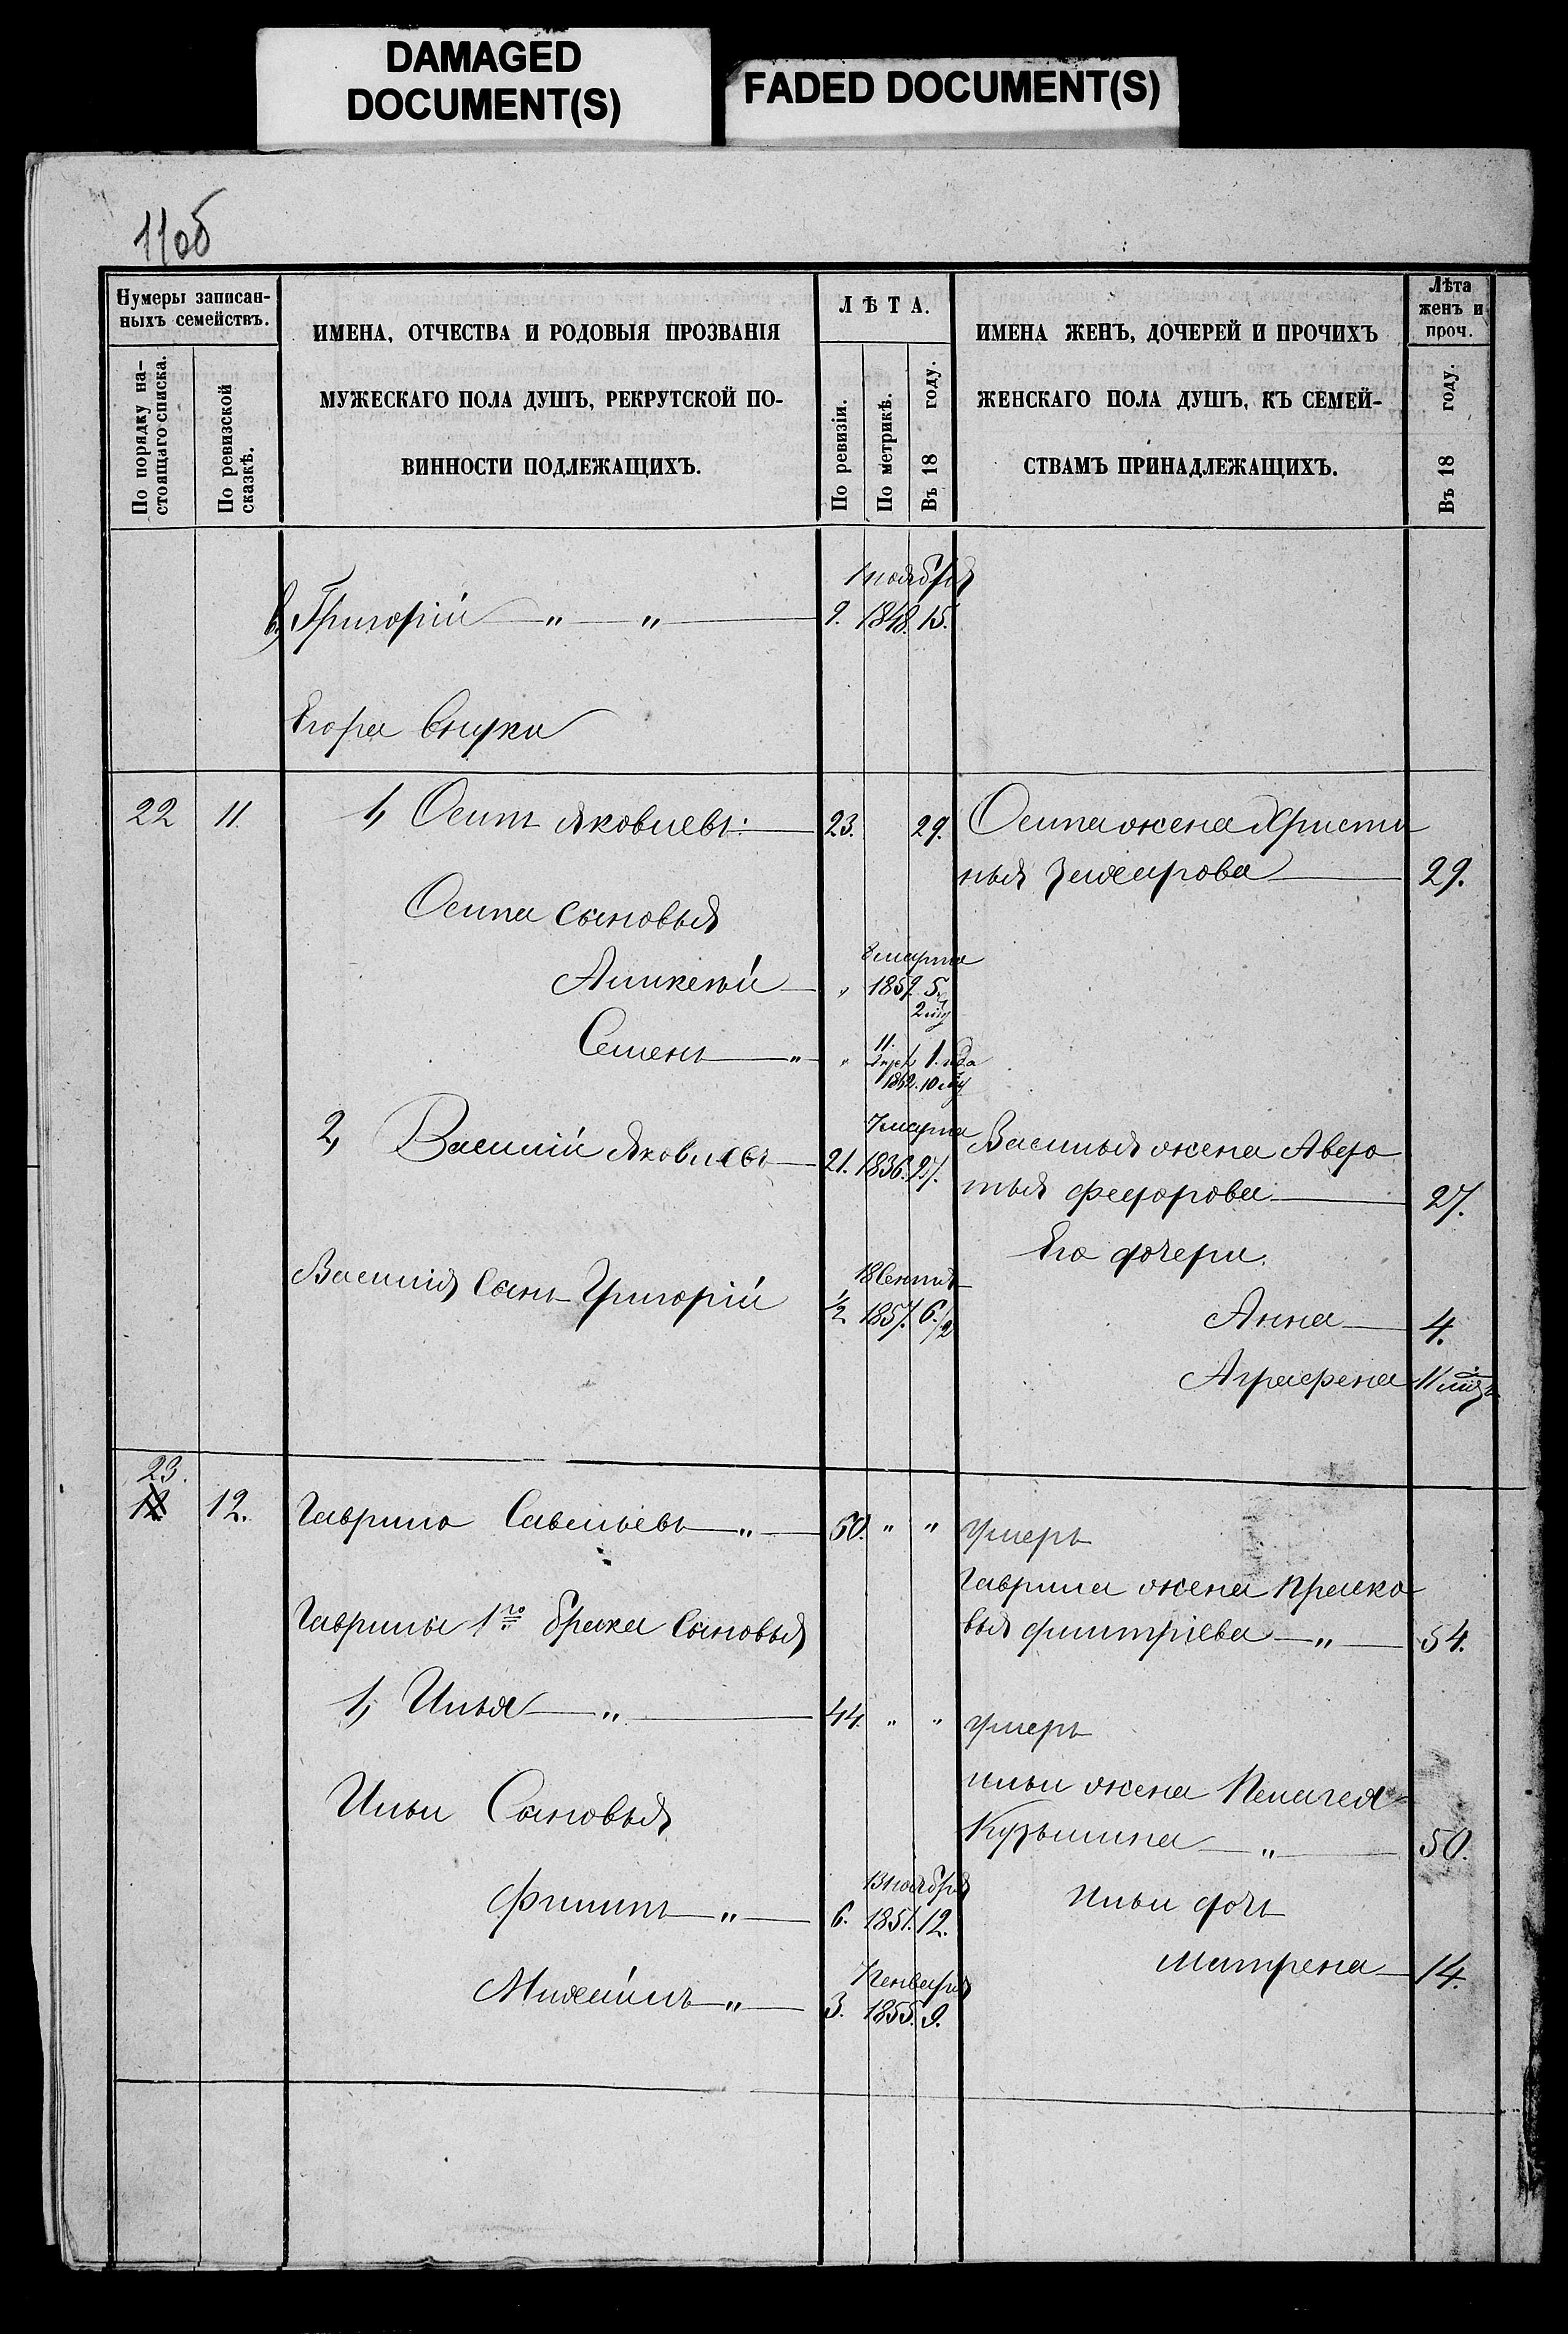 DAMAGED
DOCUMENT(S)
FADED DOCUMENT(S)
11об
Нумеры записан-
ныхъ семействъ.
По порядку на-
стоящаго списка.
По ревизской
сказкѣ.
ИМЕНА, ОТЧЕСТВА И РОДОВЫЯ ПРОЗВАНІЯ
МУЖЕСКАГО ПОЛА ДУШЪ, РЕКРУТСКОЙ ПО-
ВИННОСТИ ПОДЛЕЖАЩИХЪ.
ЛѢТА.
По ревизіи.
По метрикѣ.
Въ 18 году.
ИМЕНА ЖЕНЪ, ДОЧЕРЕЙ И ПРОЧИХЪ
ЖЕНСКАГО ПОЛА ДУШЪ, КЪ СЕМЕЙ-
СТВАМЪ ПРИНАДЛЕЖАЩИХЪ.
Лѣта
женъ и
проч.
Въ 18 году.
1 ноября
Григорій " " 9. 1848. 15.
Егора внуки
22 11. 1, Осипъ Яковлевъ: 23. 29. Осипа жена Христи
нья 29.
Осипа сыновья
8 марта
" 1859. 5
2 мѣ
Семенъ " " 11. 1. года
1862. 10 мѣ
7 марта
2, Василій Яковлевъ 21. 1836. 27. Василья жена Авдо
тья Федорова 27.
Его дочери.
18 Сентяб
Василія сынъ Григорій 1/2 1857. 6 1/2
Анна 4.
Аграфена 11 мѣ
23.
12 12. Гаврило Савельевъ " 50. " " умеръ
Гаврила жена Праско
вья Дмитріева " 54.
Гаврилы 1го брака сыновья
1, Илья " 44. " " умеръ
Ильи жена Пелагея
Кузьмина " 50.
Ильи Сыновья
13 ноября
Филипъ " 6. 1851. 12.
Ильи дочь
Матрена 14.
7 Генваря
Михайлъ " 3. 1855. 9.